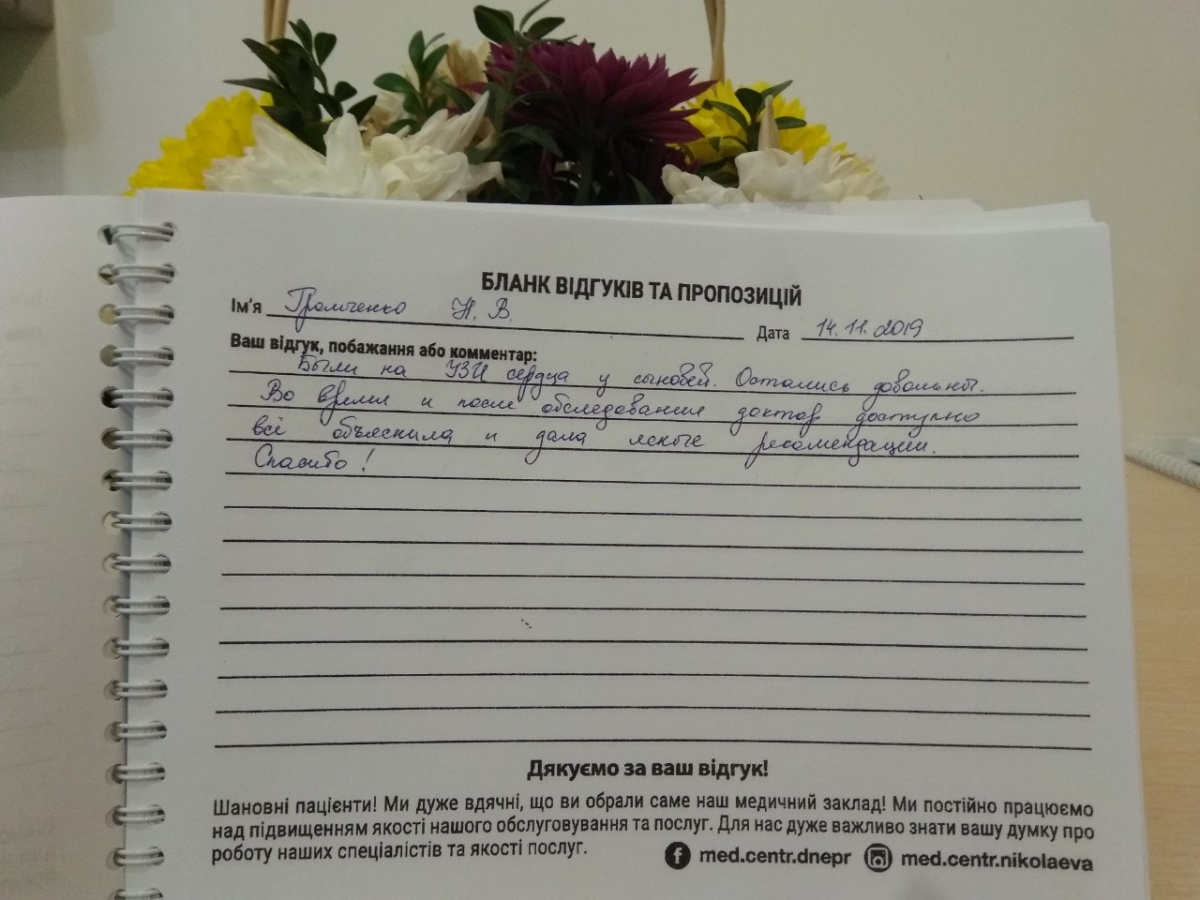 БЛАНК ВІДГУКІВ ТА ПРОПОЗИЦІЙ
Ім'я Громченко Н. В. Дата 14.11.2019
Ваш відгук, побажання або комментар:
Были на УЗИ сердца у сыновей. Остались довольны.
Во время и после обследования доктор доступно
всё объяснила и дала ясные рекомендации.
Спасибо!
Дякуємо за ваш відгук!
Шановні пацієнти! Ми дуже вдячні, що ви обрали саме наш медичний заклад! Ми постійно працюємо
над підвищенням якості нашого обслуговування та послуг. Для нас дуже важливо знати вашу думку про
роботу наших спеціалістів та якості послуг.
med.centr.dnepr med.centr.nikolaeva